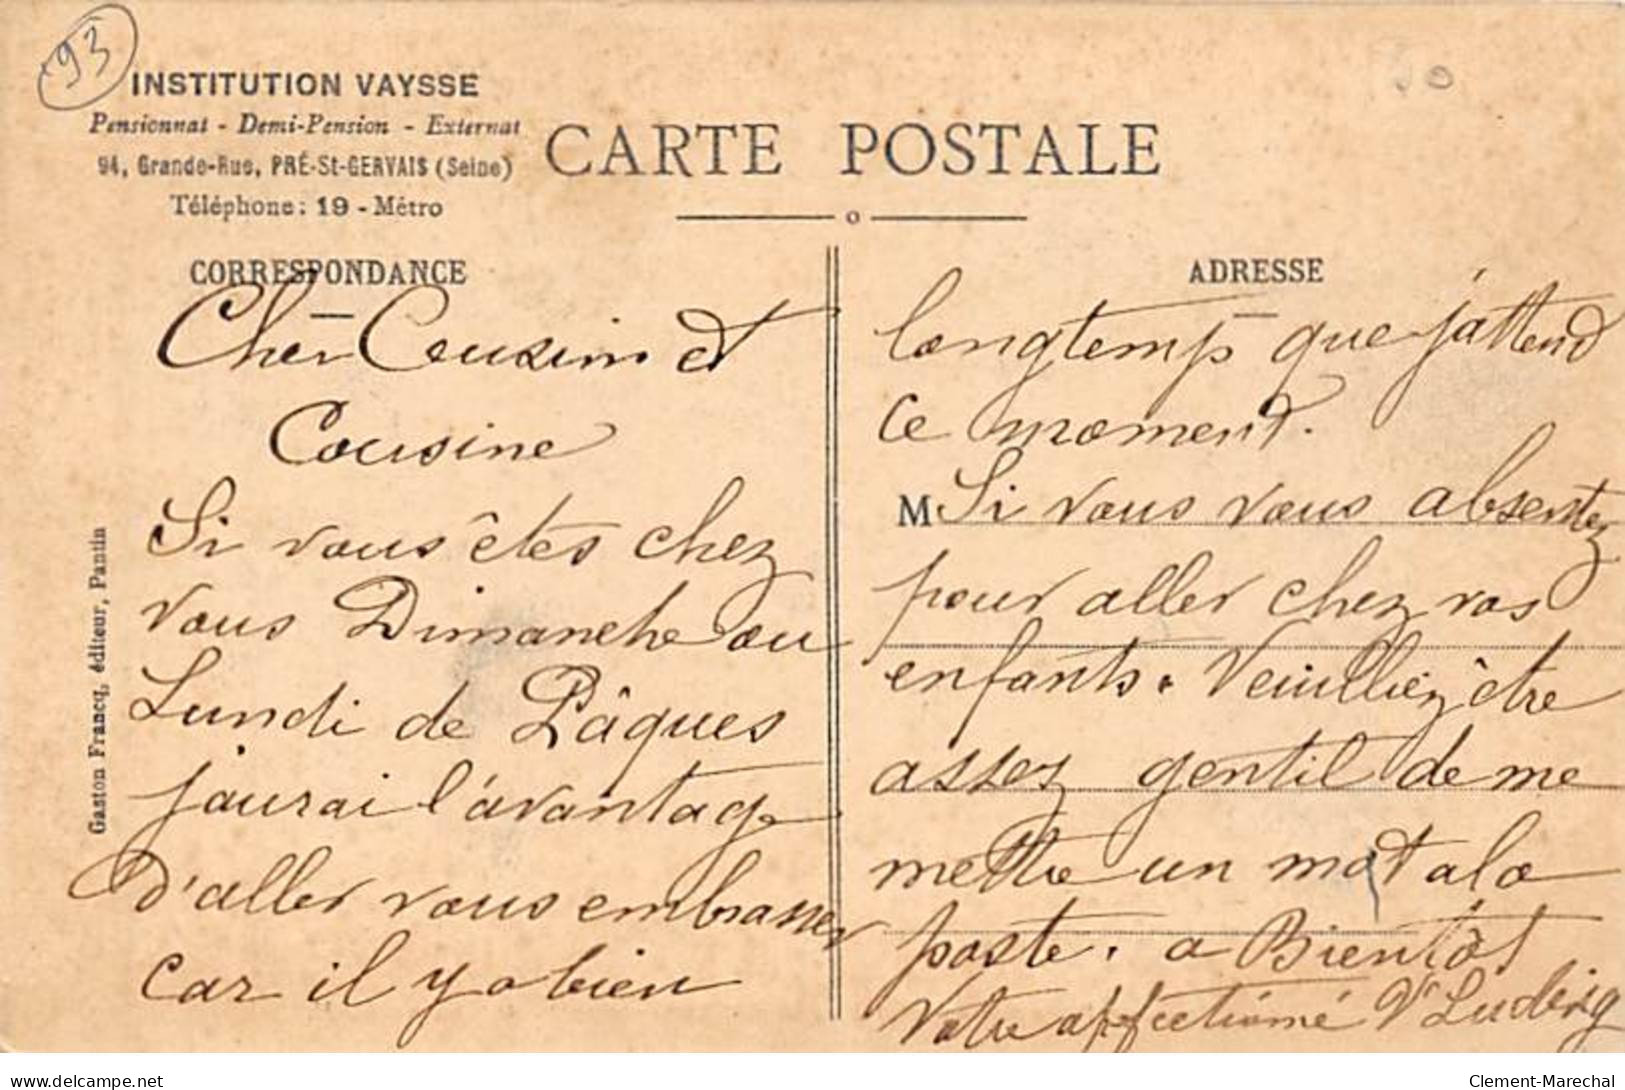 93
INSTITUTION VAYSSE
Pensionnat - Demi-Pension - Externat
94, Grande-Rue, PRÉ-St-GERVAIS (Seine)
Téléphone: 19 - Métro
CARTE POSTALE
CORRESPONDANCE
Cher Cousin et
Cousine
Si vous êtes chez
vous Dimanche ou
Lundi de Pâques
j'aurai l'avantage
d'aller vous embrasser
car il y a bien
Gaston Francq, éditeur, Pantin
ADRESSE
longtemps que j'attend
ce moment.
M
Si vous vous absentez
pour aller chez vos
enfants. Veuilliez être
assez gentil de me
mettre un mot a la
poste. a Bientôt
Votre affectionné Vr
delcampe.net
Clement-Marechal